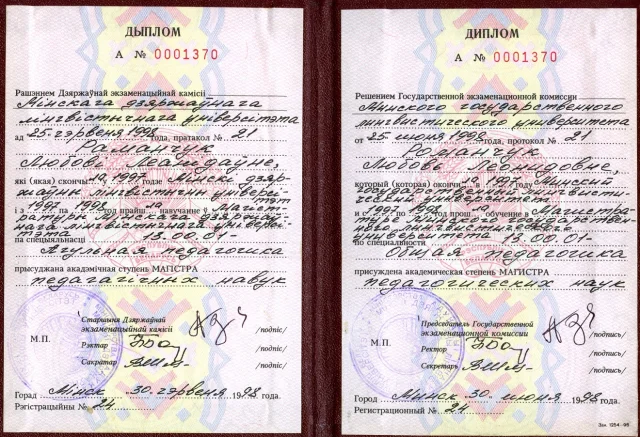 ДЫПЛОМ
А № 0001370
Рашэннем Дзяржаўнай экзаменацыйнай камісіі
Мінскага дзяржаўнага
лінгвістычнага універсітэта
ад 25 чэрвеня 1998 года, пратакол № 21
Раманчук
Любові Леанідаўне,
які (якая) скончы ла, 1997 годзе Мінскі дзяр-
жаўны лінгвістычны універсі-
тэт
і з 1997 па 1998 год прайш ла навучанне ў магіст-
ратуры Мінскага дзяржаў-
нага лінгвістычнага універсі-
тэта
па спецыяльнасці 13.00.01-
Агульная педагогіка
прысуджана акадэмічная ступень МАГІСТРА
педагагічных навук
Старшыня Дзяржаўнай
экзаменацыйнай камісіі
/подпіс/
М.П.
Рэктар
/подпіс/
Сакратар
/подпіс/
Горад Мінск 30 чэрвеня 1998 года.
Рэгістрацыйны № 24
ДИПЛОМ
А № 0001370
Решением Государственной экзаменационной комиссии
Минского государственного
лингвистического университета
от 25 июня 1998 года, протокол № 21
Романчук
Любовь Леонидовне,
который (которая) окончи ла в 1997 Минский
государственный лингвисти-
ческий университет
и с 1997 по 1998 год прош ла обучение в Магистра-
туре Минского государственно-
го лингвистического
университета
по специальности 13.00.01-
Общая педагогика
присуждена академическая степень МАГИСТРА
педагогических наук
Председатель Государственной
экзаменационной комиссии
/подпись/
М.П.
Ректор
/подпись/
Секретарь
/подпись/
Город Минск 30 июня 1998 года.
Регистрационный № 24
Зак. 1254-96